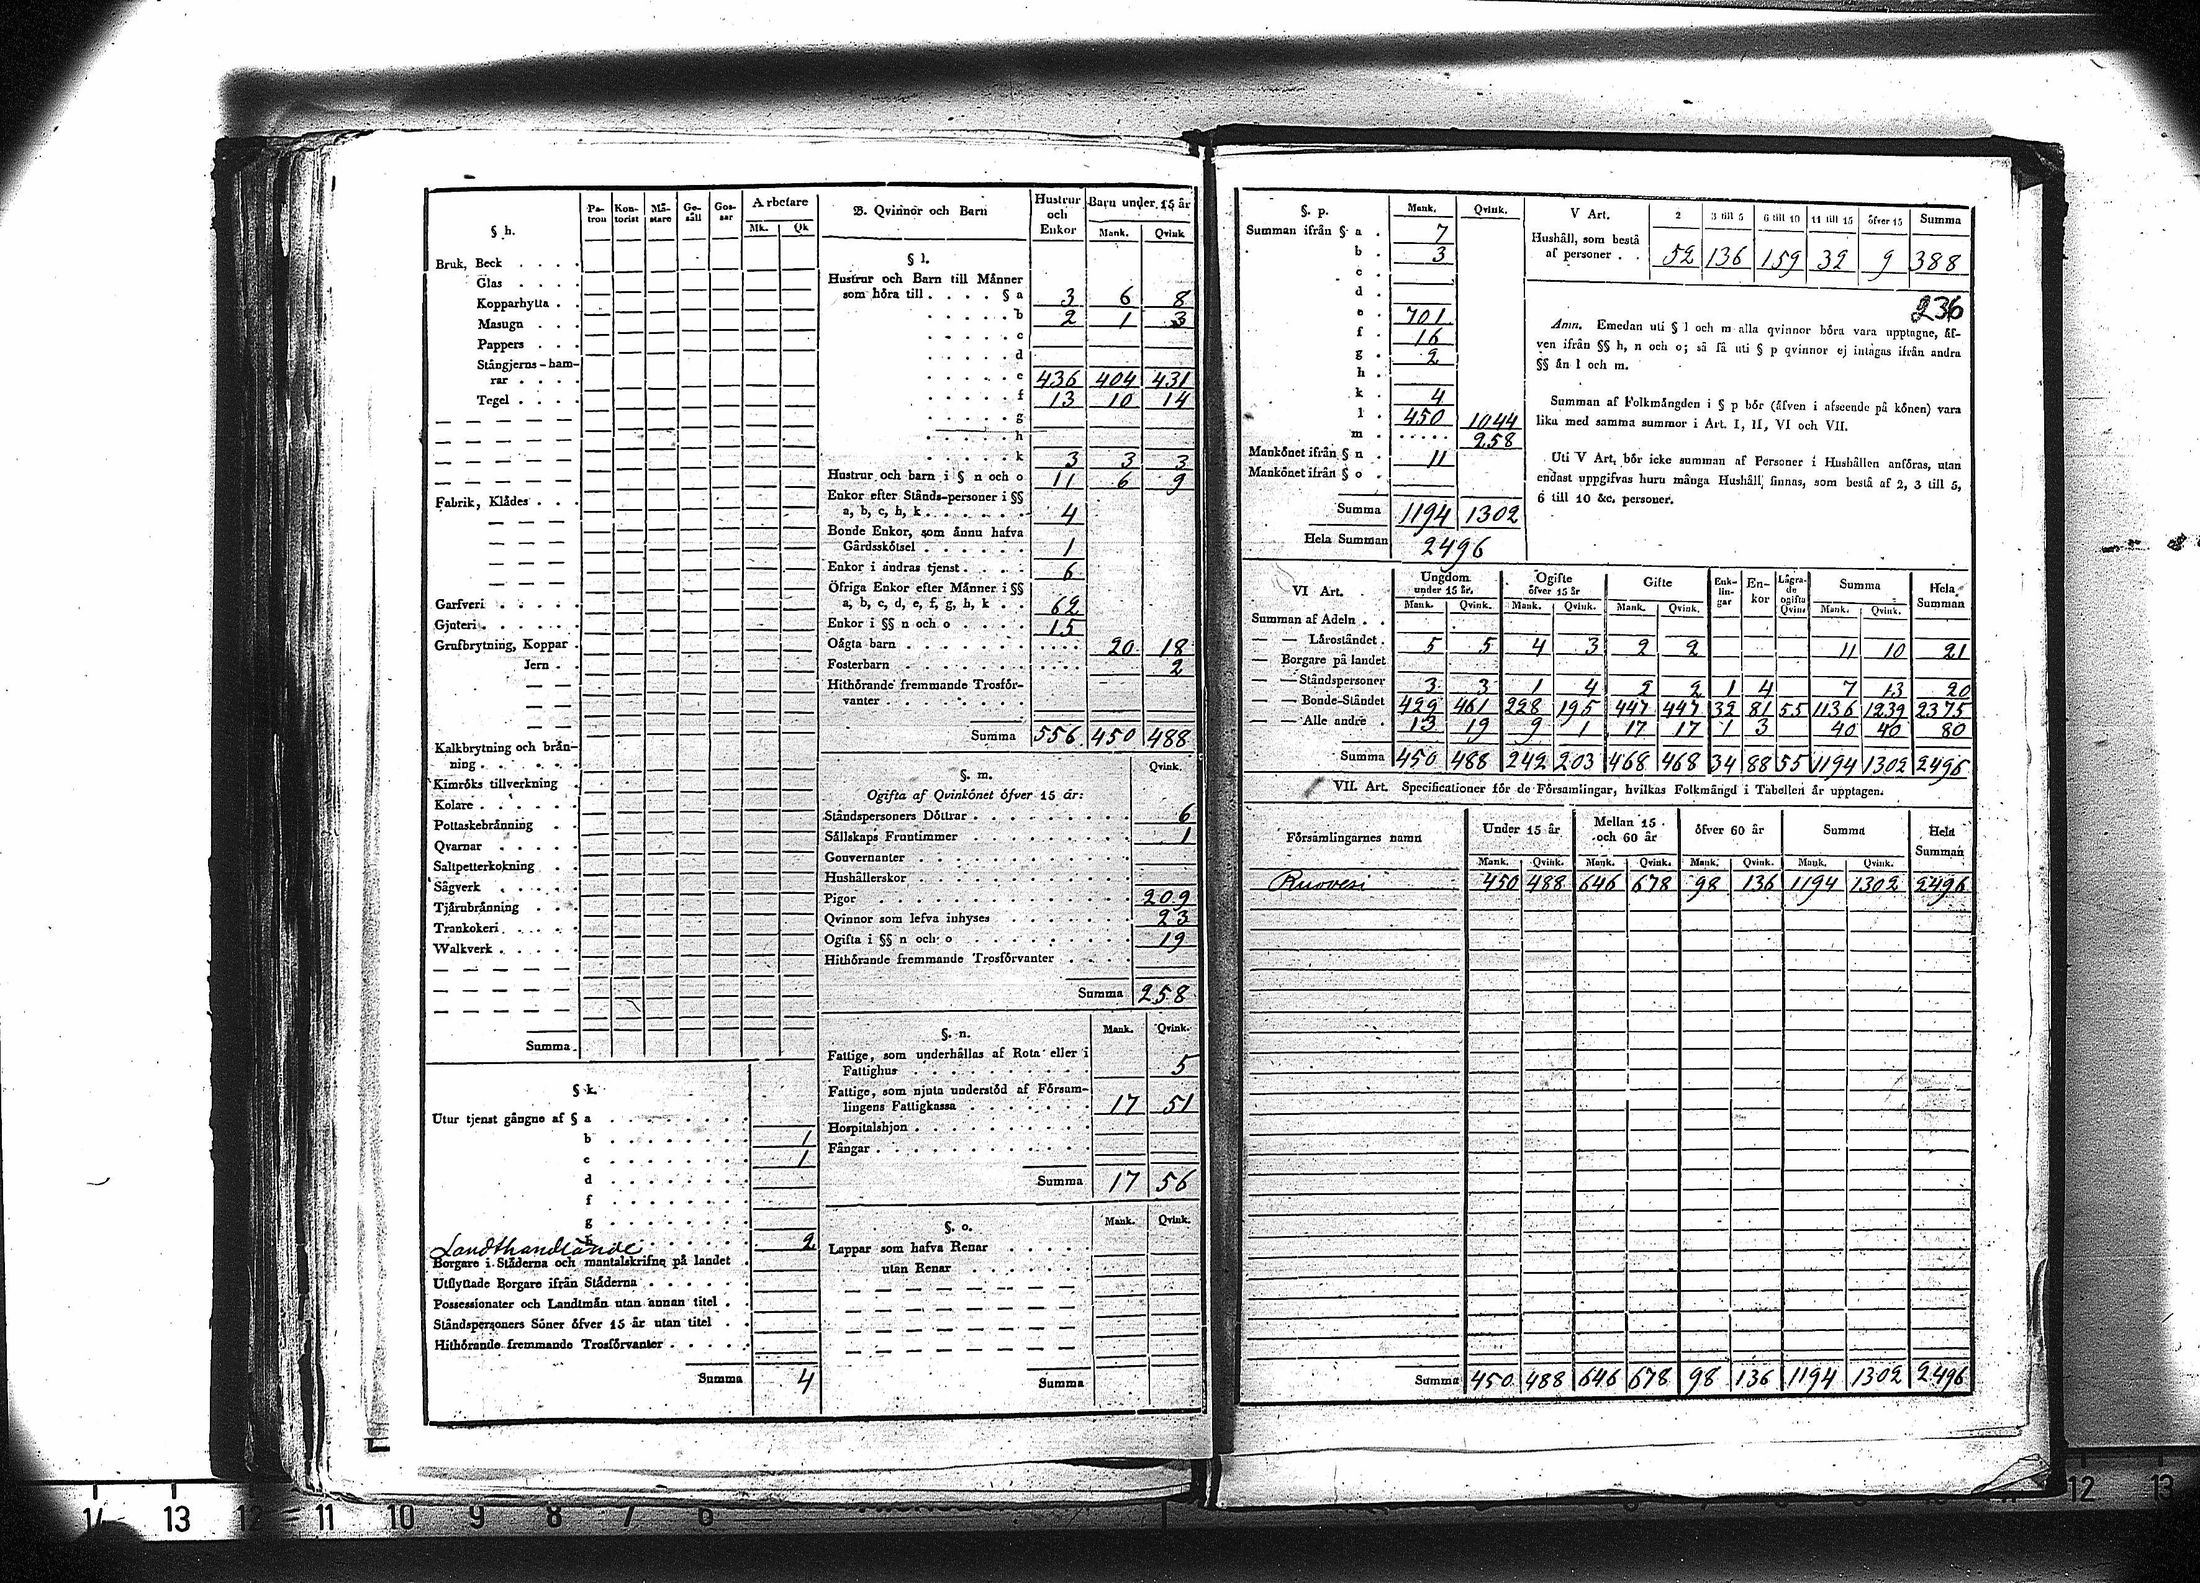 § h.
Pa-
tron
Kon-
torist
Mä-
stare
Ge-
säll
Gos-
sar
Arbetare
Mk. Qk
Bruk, Beck . . . .
Glas . . . .
Kopparhytta . .
Masugn . . .
Pappers . . .
Stångjerns-ham-
rar . . . .
Tegel . . . .
Fabrik, Klädes . . .
Garfveri . . . . .
Gjuteri . . . . . .
Grufbrytning, Koppar .
Jern . .
Kalkbrytning och brän-
ning . . . . . .
Kimröks tillverkning .
Kolare . . . . . .
Pottaskebränning . .
Qvarnar . . . . .
Saltpetterkokning . .
Sågverk . . . . .
Tjärubränning . . .
Trankokeri . . . . .
Walkverk . . . . .
Summa.
§ k.
Utur tjenst gångne af § a
b 1
c 1
d
f
g
h 2
Landthandlande
Borgare i Städerna och mantalskrifne på landet .
Utflyttade Borgare ifrån Städerna . . . . .
Possessionater och Landtmän utan annan titel . .
Ståndspersoners Söner öfver 15 år utan titel . .
Hithörande fremmande Trosförvanter . . . . .
Summa 4
B. Qvinnor och Barn
Hustrur
och
Enkor
Barn under 15 år
Mank. Qvink
§ l.
Hustrur och Barn till Männer
som höra till . . . . § a 3 6 8
b 2 1 3
c
d
e 436 404 431
f 13 10 14
g
h
k 3 3 3
Hustrur och barn i § n och o 11 6 9
Enkor efter Stånds-personer i §§
a, b, c, h, k . . . . . . 4
Bonde Enkor, som ännu hafva
Gårdsskötsel . . . . . . 1
Enkor i andras tjenst . . . . 6
Öfriga Enkor efter Männer i §§
a, b, c, d, e, f, g, h, k . . 62
Enkor i §§ n och o . . . . 15
Oägta barn . . . . . . . . 20 18
Fosterbarn . . . . . . . . 2
Hithörande fremmande Trosför-
vanter . . . . . . . .
Summa 556 450 488
§. m. Qvink.
Ogifta af Qvinkönet öfver 15 år:
Ståndspersoners Döttrar . . . . . . . . . 6
Sällskaps Fruntimmer . . . . . . . . . 1
Gouvernanter . . . . . . . . . . . .
Hushållerskor . . . . . . . . . . . .
Pigor . . . . . . . . . . . . . . 209
Qvinnor som lefva inhyses . . . . . . . 23
Ogifta i §§ n och o . . . . . . . . . 19
Hithörande fremmande Trosförvanter . . . .
Summa 258
§. n. Mank. Qvink.
Fattige, som underhållas af Rota eller i
Fattighus . . . . . . . . . . 5
Fattige, som njuta understöd af Försam-
lingens Fattigkassa . . . . . . . 17 51
Hospitalshjon . . . . . . . . . . .
Fångar . . . . . . . . . . . . .
Summa 17 56
§. o. Mank. Qvink.
Lappar som hafva Renar . . . . .
utan Renar . . . . . .
Summa
§. p. Mank. Qvink.
Summan ifrån § a . 7
b . 3
c .
d .
e . 701
f . 16
g . 2
h .
k . 4
l . 450 1044
m . . . . . . 258
Mankönet ifrån § n . 11
Mankönet ifrån § o .
Summa 1194 1302
Hela Summan 2496
V Art. 2 3 till 5 6 till 10 11 till 15 öfver 15 Summa
Hushåll, som bestå
af personer . . 52 136 159 32 9 388
236
Anm. Emedan uti § l och m alla qvinnor böra vara upptagne, äf-
ven ifrån §§ h, n och o; så få uti § p qvinnor ej intagas ifrån andra
§§ än l och m.
Summan af Folkmängden i § p bör (äfven i afseende på könen) vara
lika med samma summor i Art. I, II, VI och VII.
Uti V Art. bör icke summan af Personer i Hushållen anföras, utan
endast uppgifvas huru många Hushåll finnas, som bestå af 2, 3 till 5,
6 till 10 &c. personer.
VI Art.
Ungdom
under 15 år.
Ogifte
öfver 15 år
Gifte
Enk-
lin-
gar
En-
kor
Lägra-
de
ogifta
Qvink
Summa
Hela
Summan
Mank. Qvink. Mank. Qvink. Mank. Qvink. Mank. Qvink.
Summan af Adeln . .
— — Läroståndet . 5 5 4 3 2 2 11 10 21
— Borgare på landet
— — Ståndspersoner 3 3 1 4 2 2 1 4 7 13 20
— — Bonde-Ståndet 429 461 228 195 447 447 32 81 55 1136 1239 2375
— — Alle andre . 13 19 9 1 17 17 1 3 40 40 80
Summa 450 488 242 203 468 468 34 88 55 1194 1302 2496
VII. Art. Specificationer för de Församlingar, hvilkas Folkmängd i Tabellen är upptagen.
Församlingarnes namn
Under 15 år
Mellan 15
och 60 år
öfver 60 år
Summa
Hela
Summan
Mank. Qvink. Mank. Qvink. Mank. Qvink. Mank. Qvink.
Ruovesi 450 488 646 678 98 136 1194 1302 2496
Summa 450 488 646 678 98 136 1194 1302 2496
14 13 12 11 10 9 8 7 6
12 13